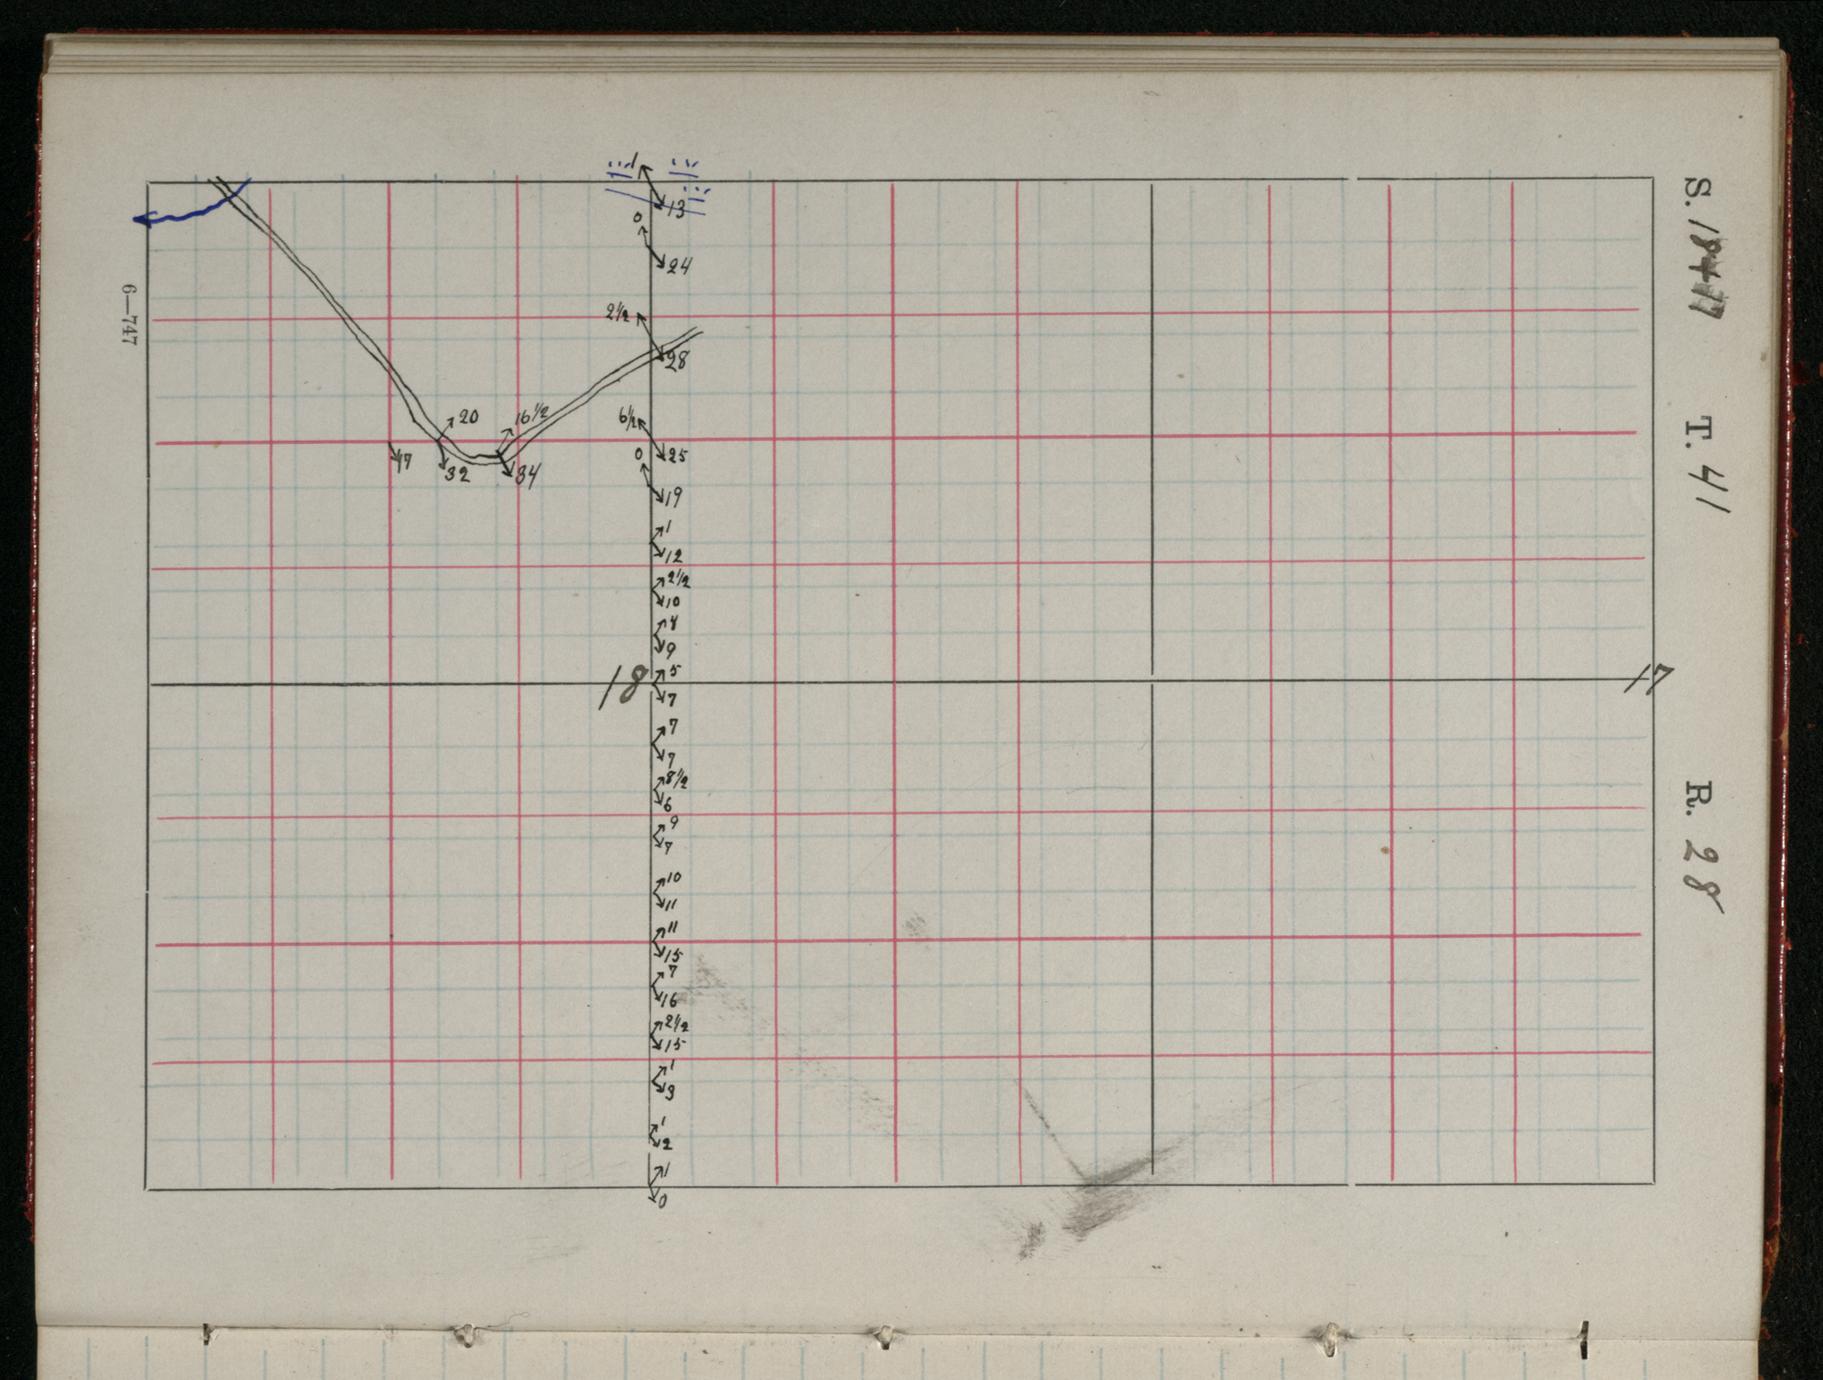 S. 18
T. 41
R. 28
6—747
1
13
0
24
2½
28
20
16½
6½
17
32
34
25
0
19
1
12
2½
10
4
9
18
5
7
17
7
7
8½
6
9
7
10
11
11
15
7
16
2½
15
1
3
1
2
1
0